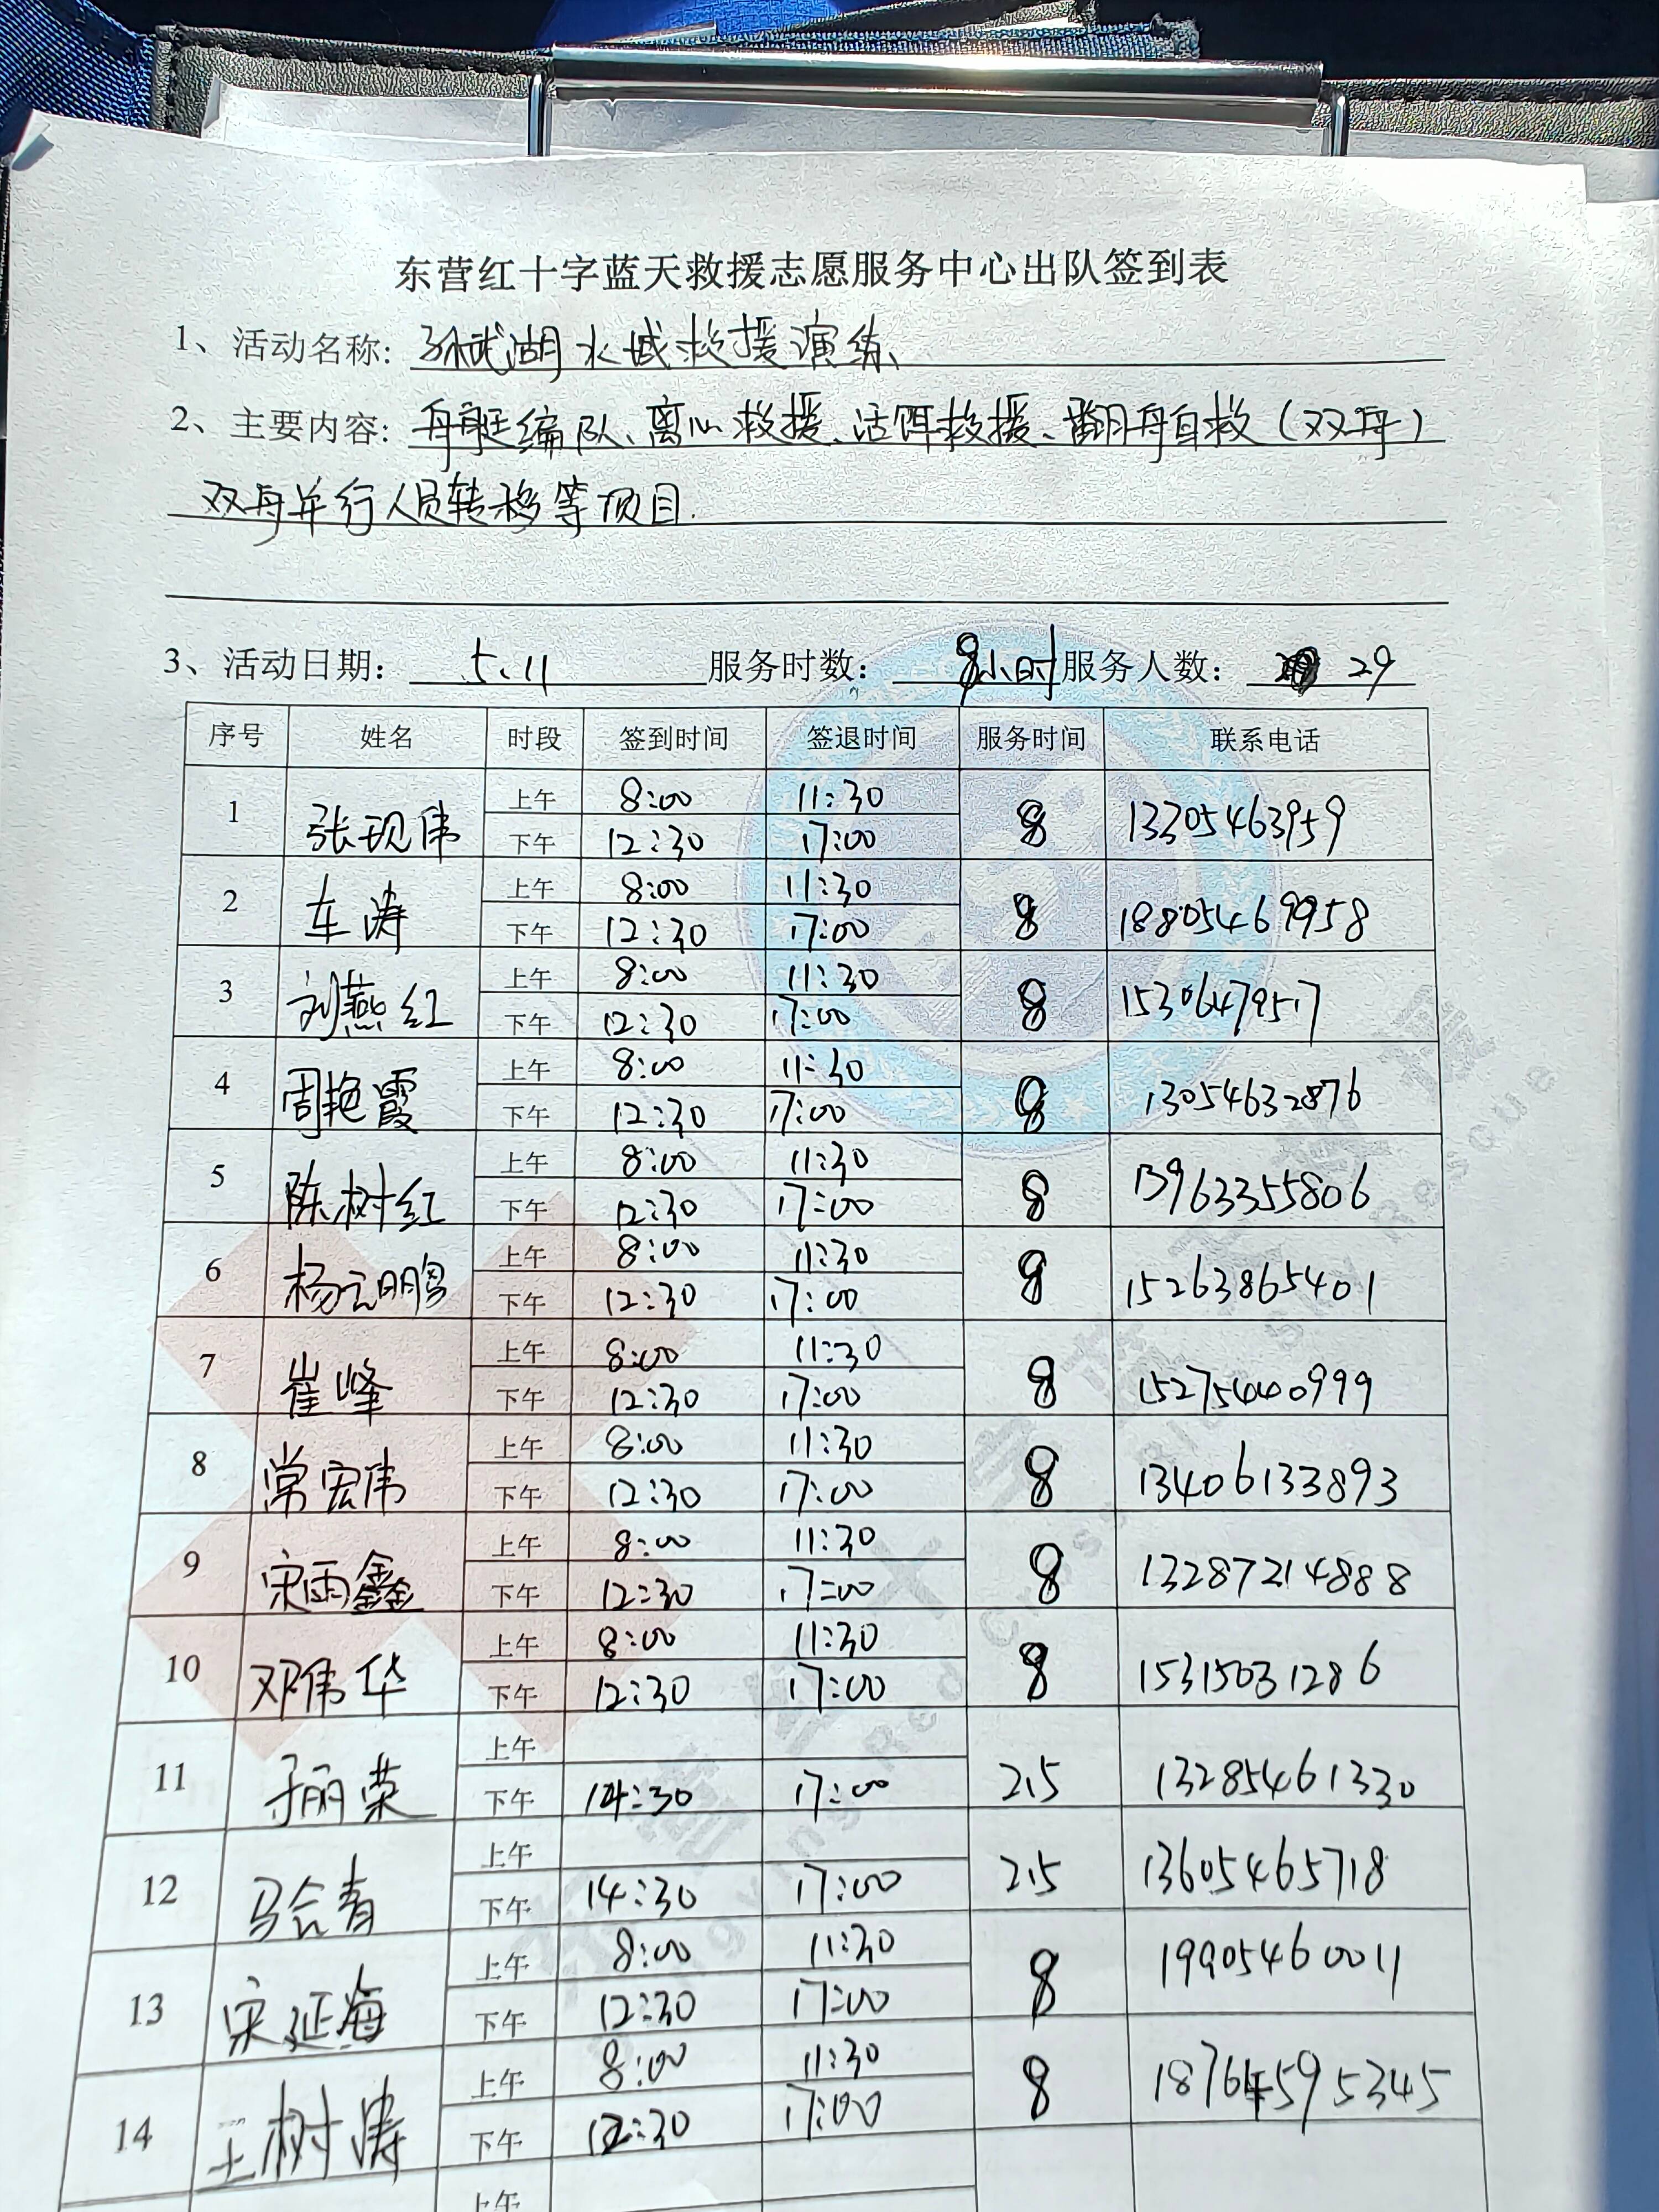 东营红十字蓝天救援志愿服务中心出队签到表
1、活动名称: 孙武湖水域救援演练
2、主要内容: 舟艇编队、离心救援、活饵救援、翻舟自救(双舟)
双舟并行人员转移等项目.
3、活动日期: 5.11 服务时数: 8小时 服务人数: 29
序号 姓名 时段 签到时间 签退时间 服务时间 联系电话
1 张现伟 上午 8:00 11:30 8 13305463959
下午 12:30 17:00
2 车涛 上午 8:00 11:30 8 18805469958
下午 12:30 17:00
3 刘燕红 上午 8:00 11:30 8 15306479517
下午 12:30 17:00
4 周艳霞 上午 8:00 11:30 8 13054632876
下午 12:30 17:00
5 陈树红 上午 8:00 11:30 8 13963355806
下午 12:30 17:00
6 杨云鹏 上午 8:00 11:30 8 15263865401
下午 12:30 17:00
7 崔峰 上午 8:00 11:30 8 15275440999
下午 12:30 17:00
8 常宏伟 上午 8:00 11:30 8 13406133893
下午 12:30 17:00
9 宋雨鑫 上午 8:00 11:30 8 13287214888
下午 12:30 17:00
10 邓伟华 上午 8:00 11:30 8 15315031286
下午 12:30 17:00
11 于丽荣 上午 2.5 13285461330
下午 14:30 17:00
12 马合青 上午 2.5 13605465718
下午 14:30 17:00
13 宋延海 上午 8:00 11:30 8 19905460011
下午 12:30 17:00
14 王树涛 上午 8:00 11:30 8
下午 12:30 17:00
上午